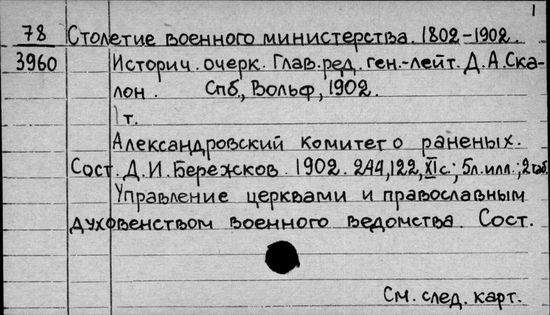 1
78 Столетие военного министерства. 1802-1902.
3960 Историч. очерк. Глав.ред. ген.-лейт. Д.А.Ска-
лон. Спб, Вольф, 1902.
т.
Александровский комитет о раненых.
Сост. Д.И.Бережков. 1902. 244,122,XI с.; 5л.илл.; 2 таб.
Управление церквами и православным
духовенством военного ведомства. Сост.
См. след. карт.